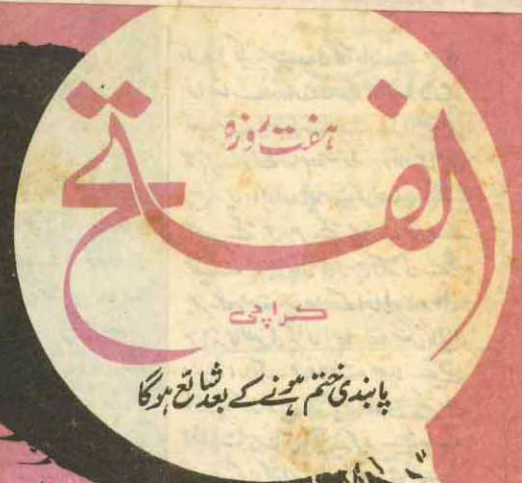 ہفت روزہ
الفتح
کراچی
پابندی ختم ہونے کے بعد شائع ہوگا